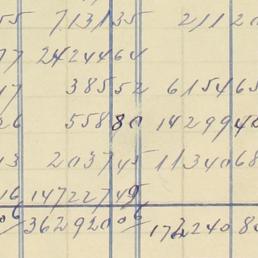 55 713135 21120
77 2424464
17 38552 615465
26 55880 1429940
13 203745 1134068
16 14722745
06 3629206 17224080